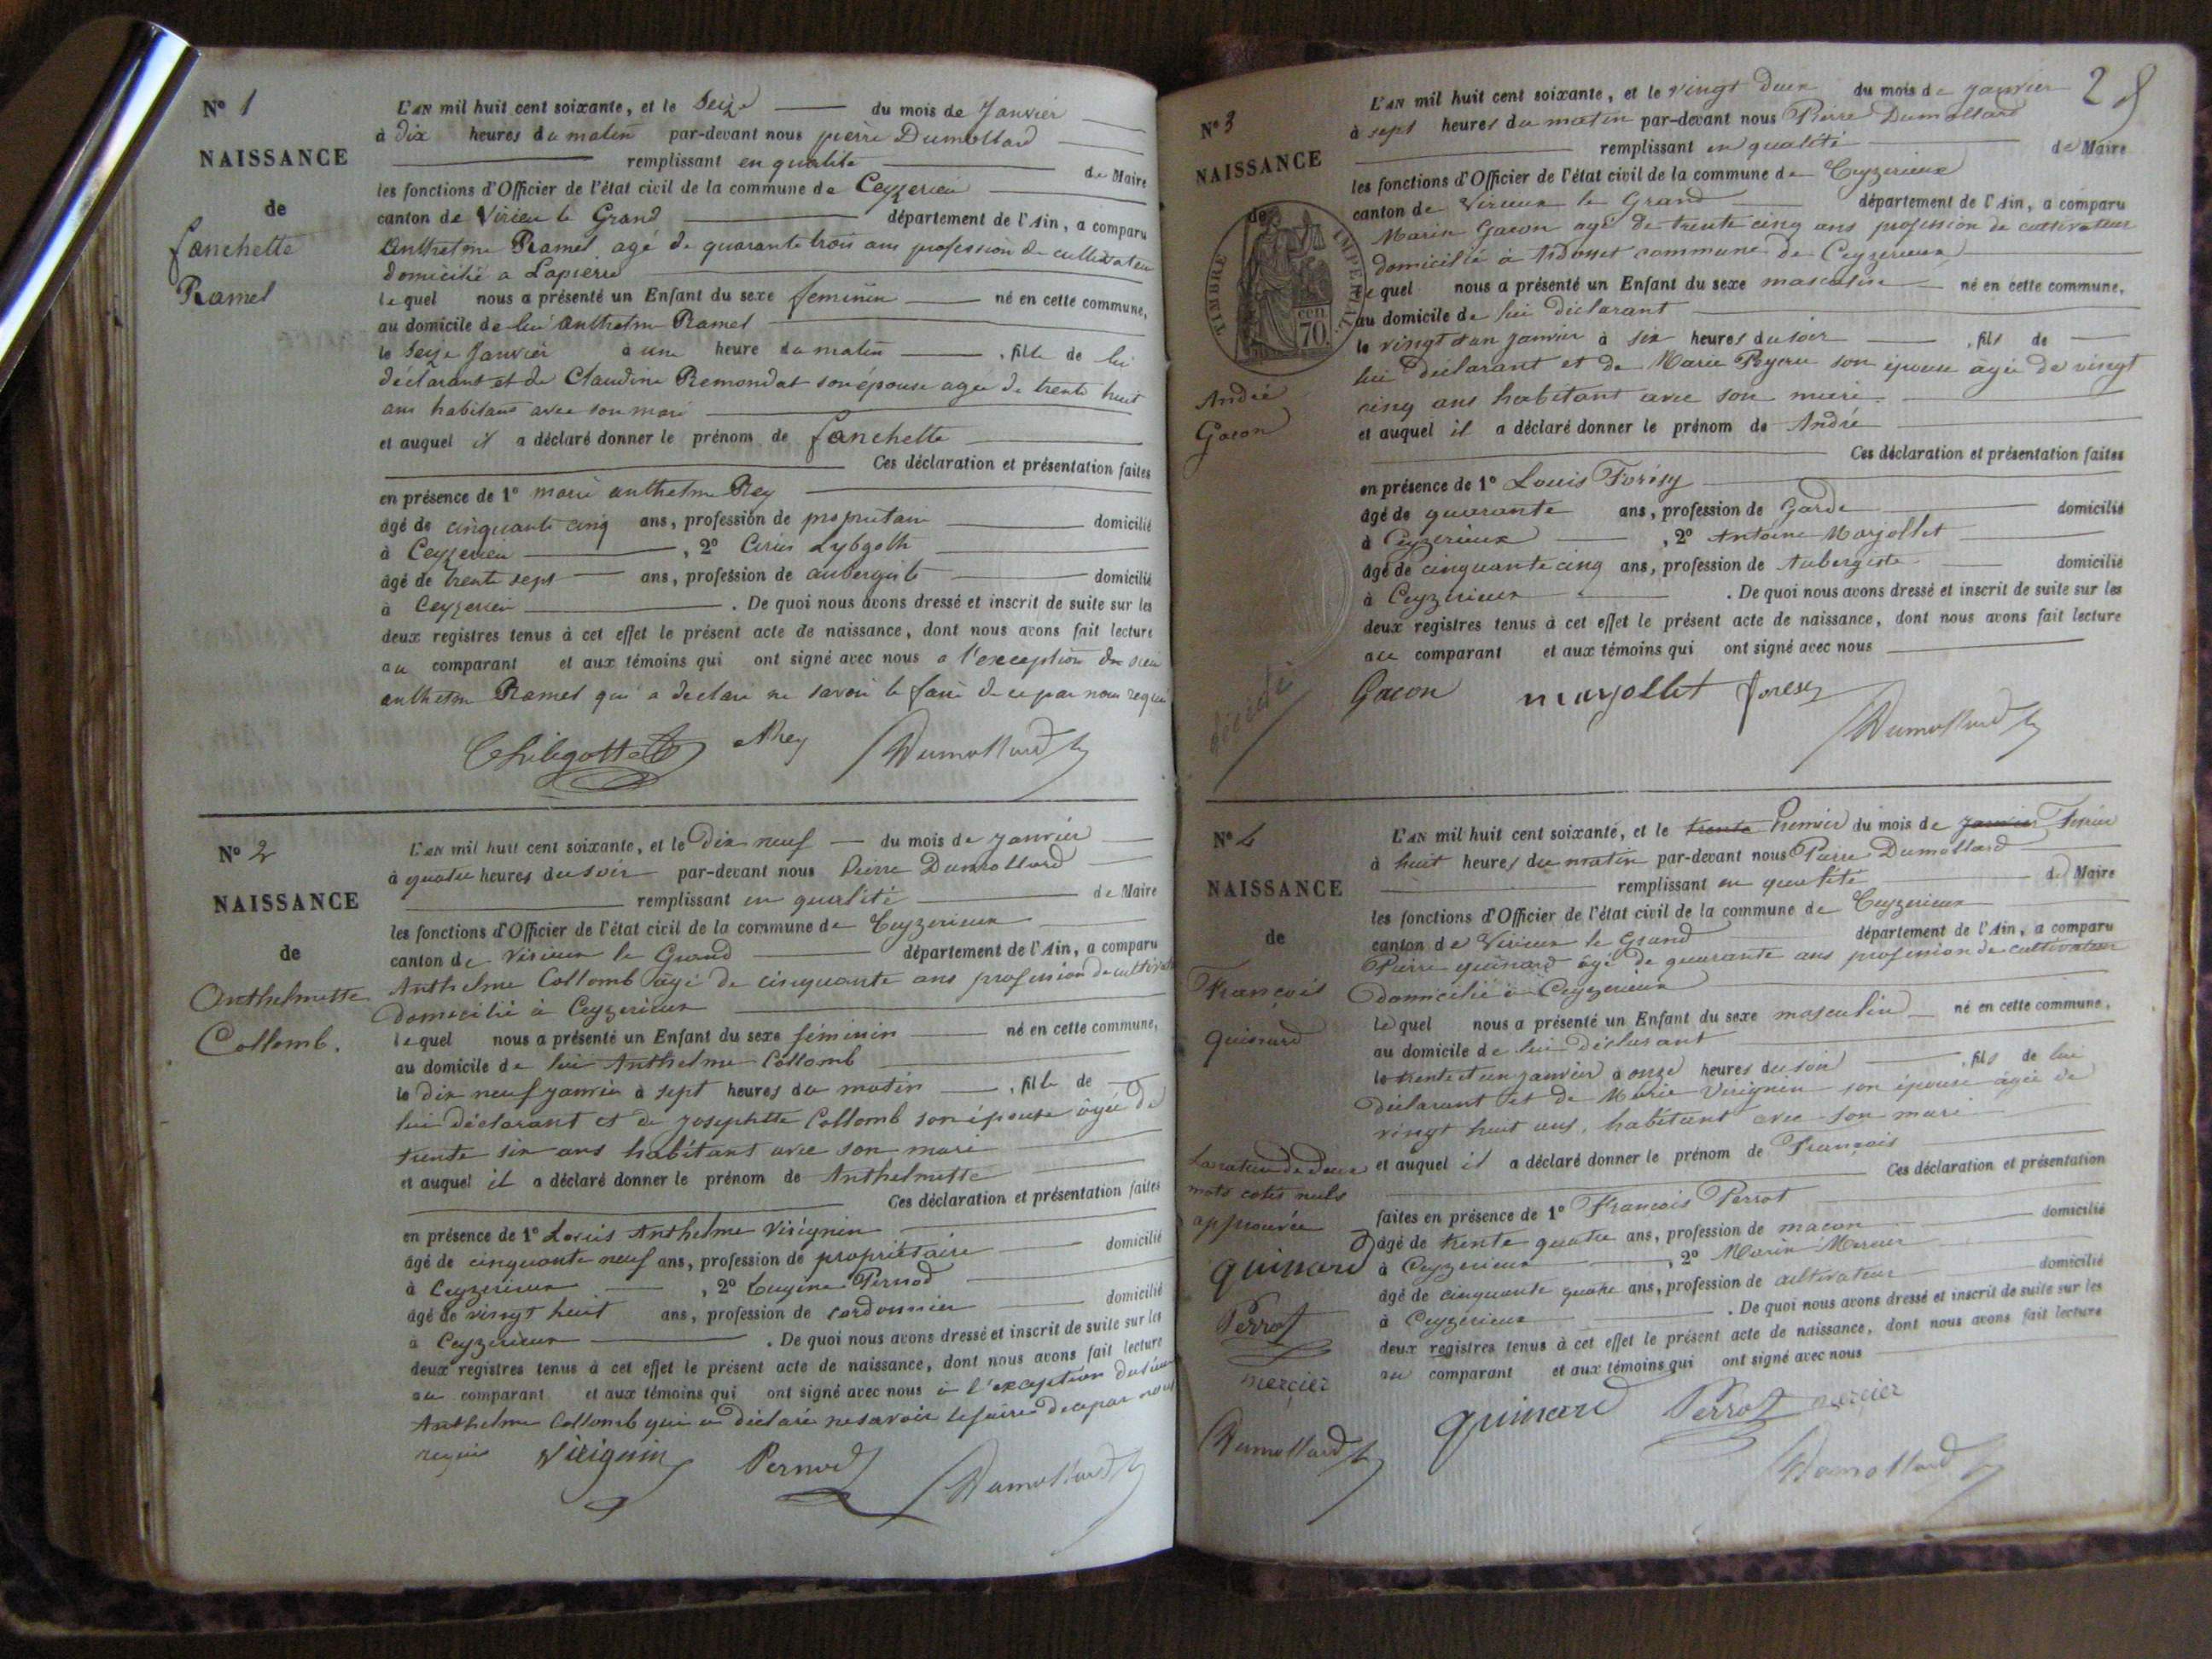 N° 1
NAISSANCE
de
fanchette
Ramel
L'AN mil huit cent soixante, et le Seize du mois de Janvier
à dix heures du matin par-devant nous pierre Dumollard
remplissant en qualité de Maire
les fonctions d'Officier de l'état civil de la commune de Ceyzerieu
canton de Virieu le Grand département de l'Ain, a comparu
anthelme Ramel agé de quarante trois ans profession de cultivateur
domicilié a Lapierre
lequel nous a présenté un Enfant du sexe feminin né en cette commune,
au domicile de lui anthelme Ramel
le Seize Janvier à une heure du matin , fille de lui
déclarant et de Claudine Remondat son épouse agée de trente huit
ans habitant avec son mari
et auquel il a déclaré donner le prénom de fanchette
Ces déclaration et présentation faites
en présence de 1° anthelme Rey
âgé de cinquante cinq ans, profession de propriétaire domicilié
à Ceyzerieu , 2°
âgé de trente sept ans, profession de aubergiste domicilié
à Ceyzerieu . De quoi nous avons dressé et inscrit de suite sur les
deux registres tenus à cet effet le présent acte de naissance, dont nous avons fait lecture
au comparant et aux témoins qui ont signé avec nous a l'exception du sieur
anthelme Ramel qui a déclaré ne savoir le faire de ce par nous requis
ARey Dumollard
N° 2
NAISSANCE
de
Anthelmette
Collomb.
L'AN mil huit cent soixante, et le Dix neuf du mois de Janvier
à quatre heures du soir par-devant nous Pierre Dumollard
remplissant en qualité de Maire
les fonctions d'Officier de l'état civil de la commune de Ceyzerieux
canton de Virieux le Grand département de l'Ain, a comparu
Anthelme Collomb âgé de cinquante ans profession de cultivateur
domicilié à Ceyzerieux
lequel nous a présenté un Enfant du sexe féminin né en cette commune,
au domicile de lui Anthelme Collomb
le dix neuf janvier à sept heures du matin , fille de
lui déclarant et de Josephtte Collomb son épouse âgée de
trente six ans habitant avec son mari
et auquel il a déclaré donner le prénom de Anthelmette
Ces déclaration et présentation faites
en présence de 1° Louis Anthelme Virignin
âgé de cinquante neuf ans, profession de propriétaire domicilié
à Ceyzerieux , 2° Eugène Pernod
âgé de vingt huit ans, profession de cordonnier domicilié
à Ceyzerieux . De quoi nous avons dressé et inscrit de suite sur les
deux registres tenus à cet effet le présent acte de naissance, dont nous avons fait lecture
au comparant et aux témoins qui ont signé avec nous à l'exception du sieur
Anthelme Collomb qui a déclaré ne savoir le faire de ce par nous
requis Virignin Pernod Dumollard
28
N° 3
NAISSANCE
de
TIMBRE IMPERIAL
cen 70
André
Gacon
décédé
L'AN mil huit cent soixante, et le vingt deux du mois de Janvier
à sept heures du matin par-devant nous Pierre Dumollard
remplissant en qualité de Maire
les fonctions d'Officier de l'état civil de la commune de Ceyzerieux
canton de Virieux le Grand département de l'Ain, a comparu
Marin Gacon agé de trente cinq ans profession de cultivateur
domicilié à Ardosset commune de Ceyzerieux
lequel nous a présenté un Enfant du sexe masculin né en cette commune,
au domicile de lui déclarant
le vingt et un janvier à six heures du soir , fils de
lui déclarant et de Marie son épouse âgée de vingt
cinq ans habitant avec son mari.
et auquel il a déclaré donner le prénom de André
Ces déclaration et présentation faites
en présence de 1° Louis Forisy
âgé de quarante ans, profession de Garde domicilié
à Ceyzerieux , 2° Antoine Marjollet
âgé de cinquante cinq ans, profession de Aubergiste domicilié
à Ceyzerieux . De quoi nous avons dressé et inscrit de suite sur les
deux registres tenus à cet effet le présent acte de naissance, dont nous avons fait lecture
au comparant et aux témoins qui ont signé avec nous
Gacon marjollet foresy
Dumollard
N° 4
NAISSANCE
de
François
Guinard
La rature de deux
mots cotés nuls
approuvée
guinard
Perrot
mercier
Dumollard
L'AN mil huit cent soixante, et le trente Premier du mois de janvier Février
à huit heures du matin par-devant nous Pierre Dumollard
remplissant en qualité de Maire
les fonctions d'Officier de l'état civil de la commune de Ceyzerieux
canton de Virieux le Grand département de l'Ain, a comparu
Pierre guinard âgé de quarante ans profession de cultivateur
Domicilié à Ceyzerieux
lequel nous a présenté un Enfant du sexe masculin né en cette commune,
au domicile de lui déclarant
le trente et un janvier à onze heures du soir , fils de lui
déclarant et de Marie Virignin son épouse âgée de
vingt huit ans, habitant avec son mari
et auquel il a déclaré donner le prénom de François
Ces déclaration et présentation
faites en présence de 1° François Perrot
âgé de trente quatre ans, profession de maçon domicilié
à Ceyzerieux , 2° Marin Mercier
âgé de cinquante quatre ans, profession de cultivateur domicilié
à Ceyzerieux . De quoi nous avons dressé et inscrit de suite sur les
deux registres tenus à cet effet le présent acte de naissance, dont nous avons fait lecture
au comparant et aux témoins qui ont signé avec nous
guinard Perrot mercier
Dumollard